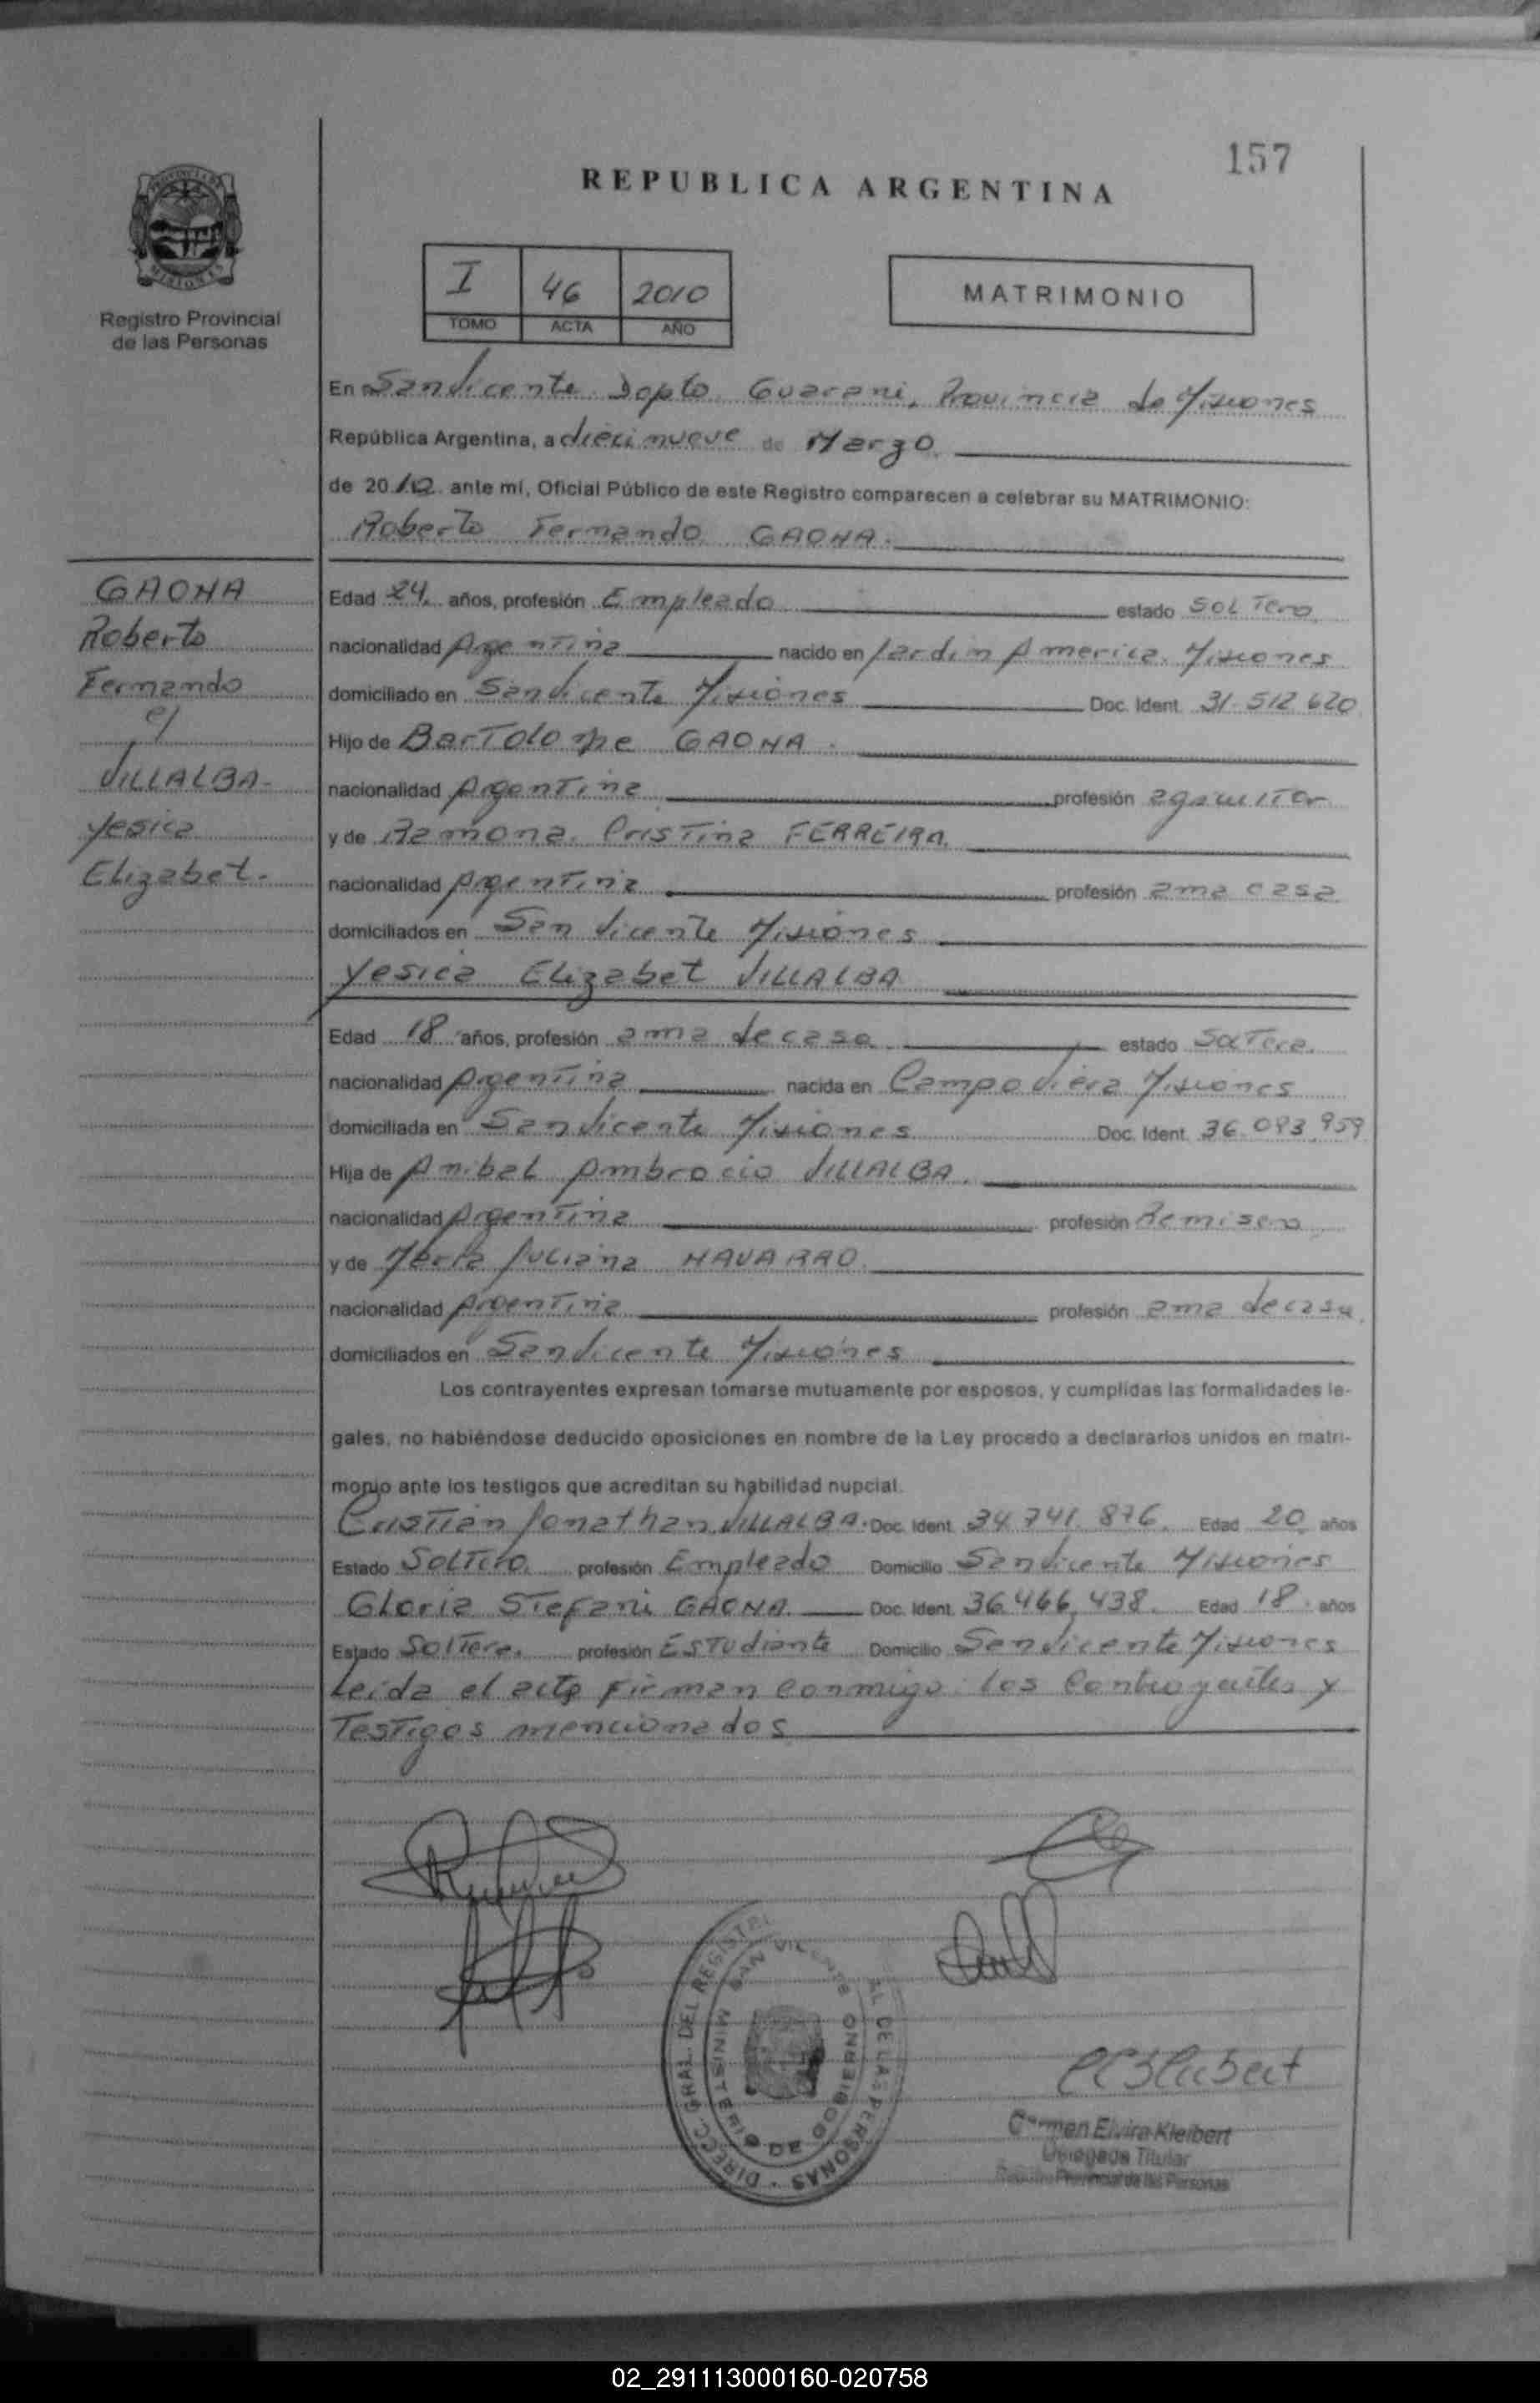 157
REPUBLICA ARGENTINA
PROVINCIA DE
MISIONES
Registro Provincial
de las Personas
I 46 2010
TOMO ACTA AÑO
MATRIMONIO
En San Vicente Dopto Guarani, Provincia de Misiones
República Argentina, a dieci nueve de Marzo.
de 20 10 ante mí, Oficial Público de este Registro comparecen a celebrar su MATRIMONIO:
Roberto Fernando GAONA.
GAONA
Roberto
Fernando
c/
VILLALBA-
Yesica
Elizabet.-
Edad 24. años, profesión Empleado estado SOLTero
nacionalidad ArgenTina nacido en Jardin America. Misiones
domiciliado en San Vicente Misiones Doc. Ident. 31.512.620
Hijo de BarTolome GAONA.
nacionalidad ArgenTina profesión agriculTor
y de Ramona. CrisTina FERREIRA.
nacionalidad ArgenTina profesión ama casa
domiciliados en San Vicente Misiones
Yesica Elizabet VILLALBA
Edad 18 años, profesión ama de casa estado SolTera.
nacionalidad ArgenTina nacida en Campo Viera Misiones
domiciliada en San Vicente Misiones Doc. Ident. 36.093.959
Hija de Anibal Ambrocio VILLALBA.
nacionalidad ArgenTina profesión Remisero
y de Maria Juliana NAVARRO.
nacionalidad ArgenTina profesión ama de casa.
domiciliados en San Vicente Misiones
Los contrayentes expresan tomarse mutuamente por esposos, y cumplidas las formalidades le-
gales, no habiéndose deducido oposiciones en nombre de la Ley procedo a declararlos unidos en matri-
monio ante los testigos que acreditan su habilidad nupcial.
CrisTian Jonathan VILLALBA. Doc. Ident. 34.741.876. Edad 20 años
Estado SolTero. profesión Empleado Domicilio San Vicente Misiones
Gloria STefani GAONA. Doc. Ident. 36.466.438. Edad 18. años
Estado SolTera. profesión ESTudiante Domicilio San Vicente Misiones
Leida el acta firman conmigo los Contrayentes y
Testigos mencionados
DIRECC. GRAL. DEL REGISTRO DE LAS PERSONAS
SAN VICENTE
MINISTERIO DE GOBIERNO
Carmen Elvira Kleibert
Delegada Titular
Registro Provincial de las Personas
02_291113000160-020758